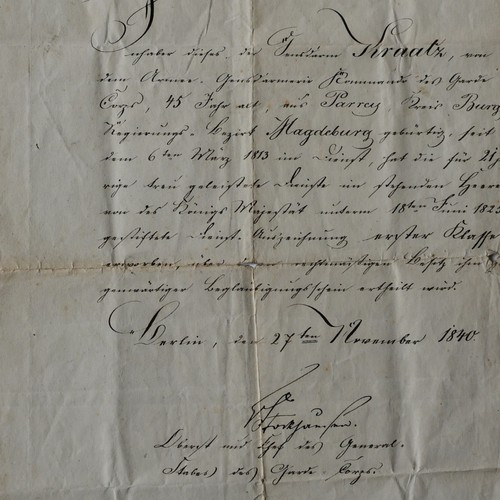 Inhaber dieses, der Gensdarm Kraatz, von
dem Armee-Gensdarmerie Kommando des Garde
Corps, 45 Jahr alt, aus Parrey Kreis Burg
Regierungs-Bezirk Magdeburg gebürtig, seit
dem 6ten März 1813 im Dienst, hat die für 21jä
rige treu geleistete Dienste im stehenden Heere
von des Königs Majestät unterm 18ten Juni 1825
gestiftete Dienst-Auszeichnung erster Klasse
erworben, über deren rechtmäßigen Besitz ihm
gegenwärtiger Beglaubigungsschein ertheilt wird.
Berlin, den 27ten November 1840.
Stockhausen.
Oberst und Chef des General-
Stabes des Garde-Corps.